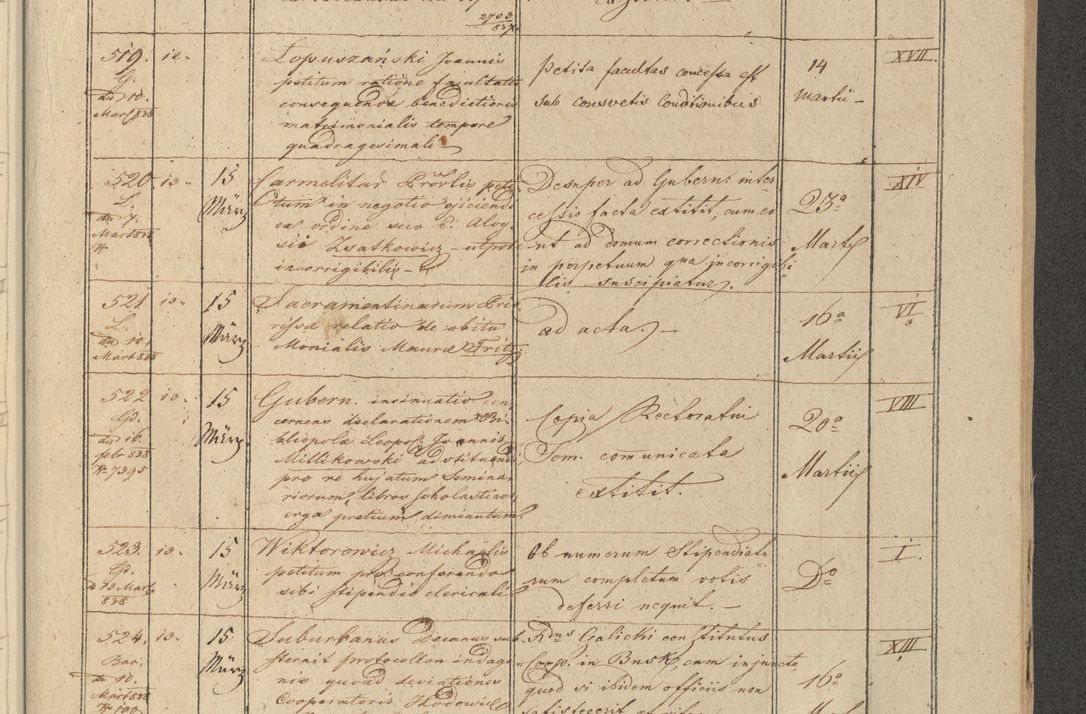 2703
837
519. 12.
G.
dto 10.
Mart 838
Lopuszański Joannis
petitum ratione facultatis
consequendae benedictionis
matrimonialis tempore
quadragesimali
petita facultas concessa est
sub consvetis conditionibus
14
Martii
XVII
520. 13.
L.
dto 7.
Mart 838
15
März
Carmelitar
in negotio ejiciendi
ex ordine suo P. Aloy-
sie Zsatkowicz utpote
incorrigibilis
Desuper ad Gubern: inter
cessio facta extitit, cum eo
ut ad domum correctionis
in perpetuum qua incorrigibi
lis suscipiatur.
23a
Martij
XIV
521 13.
L.
dto 10.
Mart 838
15
März
Sacramentinarum Prio
rissae relatio de obitu
Monialis Maurae Fritz
ad acta.
16a
Martii
VI
522 13.
Gd.
dto 16.
febr 838
N 7395
15
März
Gubern. insinuatio con
cernens declarationem Bi
bliopolae Leopol Joannis
Millikowski adstituendi
pro re hujatum Seminar
riorum, libros scholasticos
erga pretium diminutum
Copia Rectoratui
Sem. comunicata
extitit.
20a
Martii
VIII
523. 13.
Gd.
d 13 Mart
838
15
März
Wiktorowicz Michaelis
petitum pro conferendo
sibi stipendio clericali
Ob numerum Stipendiato
rum completum votis
deferri nequit.
Do
I
524. 13.
Bar.
dto 10.
Mart 838
N 100
15
März
Suburbanus Decanus sub
sternit protocollon indagi
nis quoad deviationes
Cooperatoris Hodowice
Rdus Galicki constitutus
Coop. in Busk, cum injuncto
quod si ibidem officiis non
satisfecerit
16a
XIII